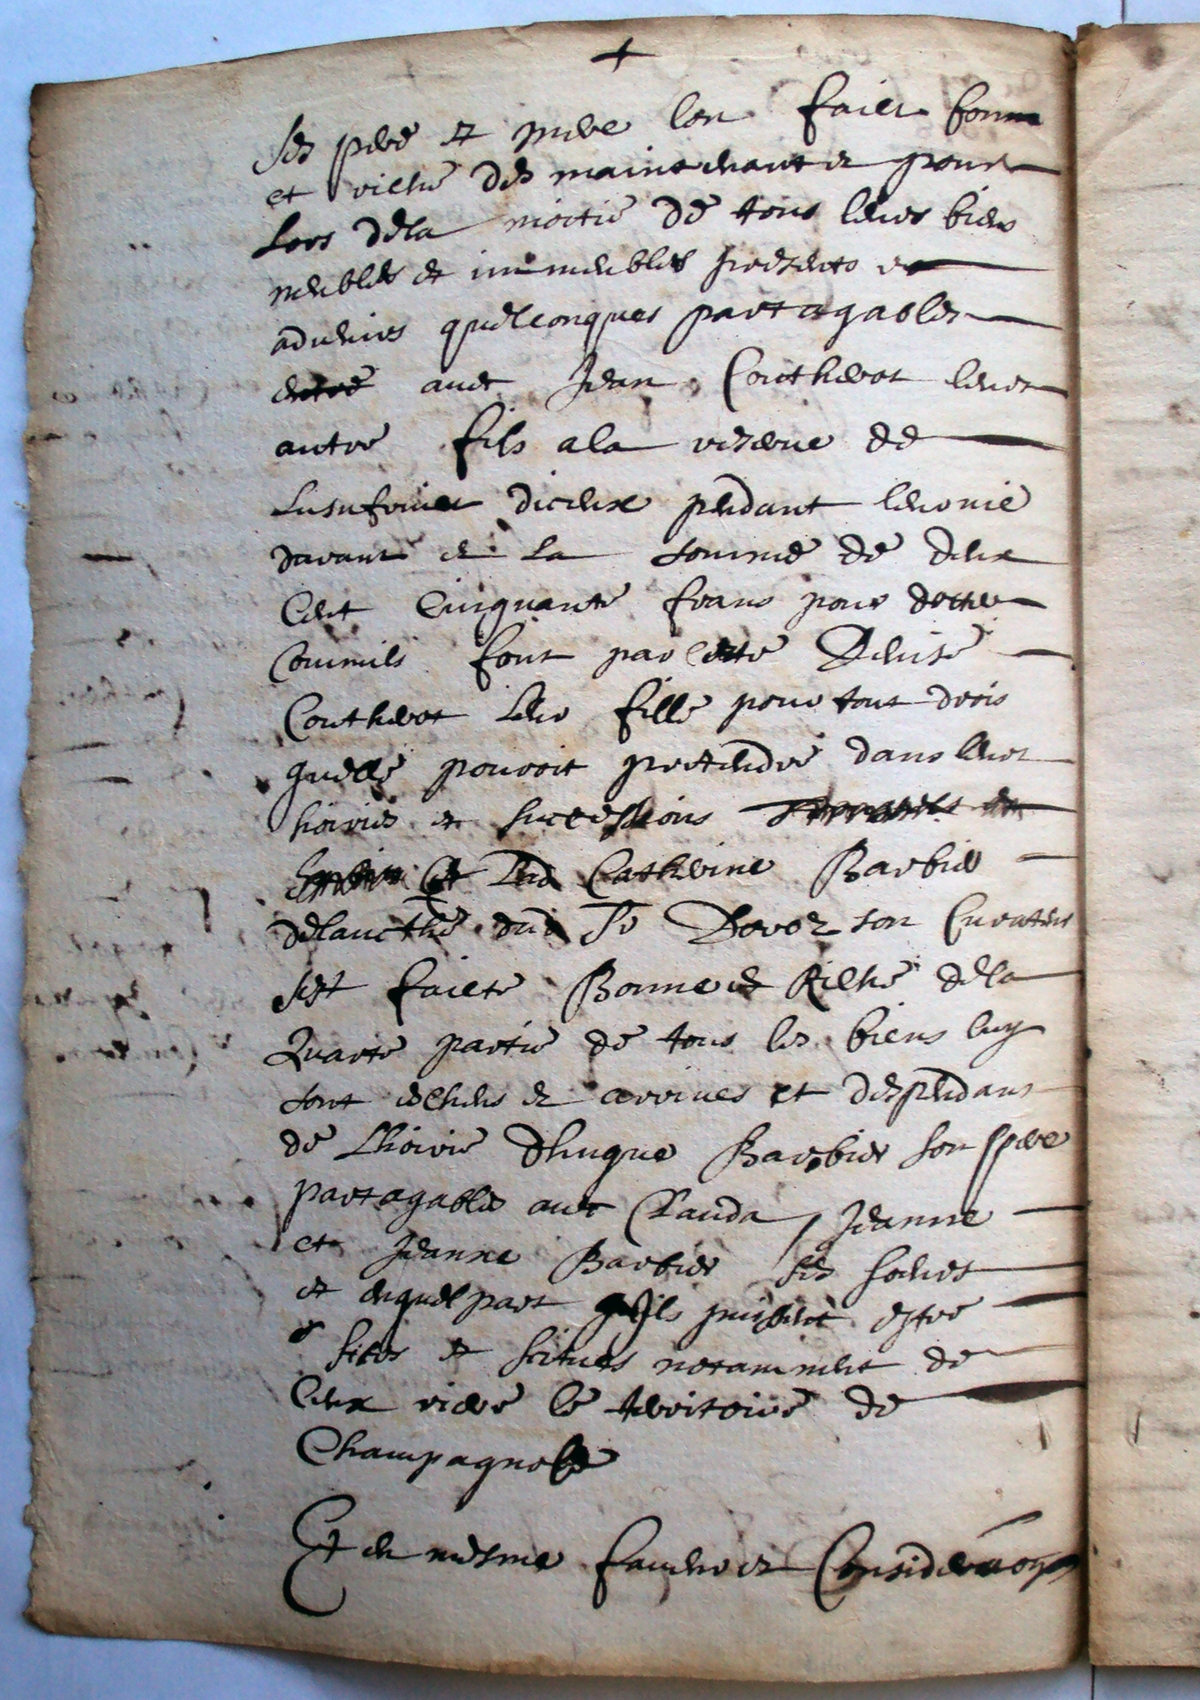 +
ses pere et mere lon faict bonne
et riche des maintenant et pour
Lors dela moitie de tous leurs biens
meubles et immeubles presents et
advenirs quelconques partagables
entre avec Jean Couthevot leur
autre fils a la reserve de
Lusufruict diceux pendant leur vie
durant et la somme de deux
Cent Cinquante frans pour dotte
Commils font par cette Denise
Couthevot leur fille pour tout drois
quelle pouroit pretendre dans leur
hoirie et successions
Catherine Barbier
delaucthe dud Sr Dovoz son Curateur
sest faicte Bonne et Riche dela
Quarte partie de tous les biens luy
sont escheus et arrives et despendans
de Lhoirie dhugue Barbier son pere
partagables avec Clauda, Jeanne
et Jeanne Barbier ses soeurs
et enquel part quils puissent estre
sites et scitues notamment de
Ceux riere le territoire de
Champagnole
Et en mesme faveur et Consideration